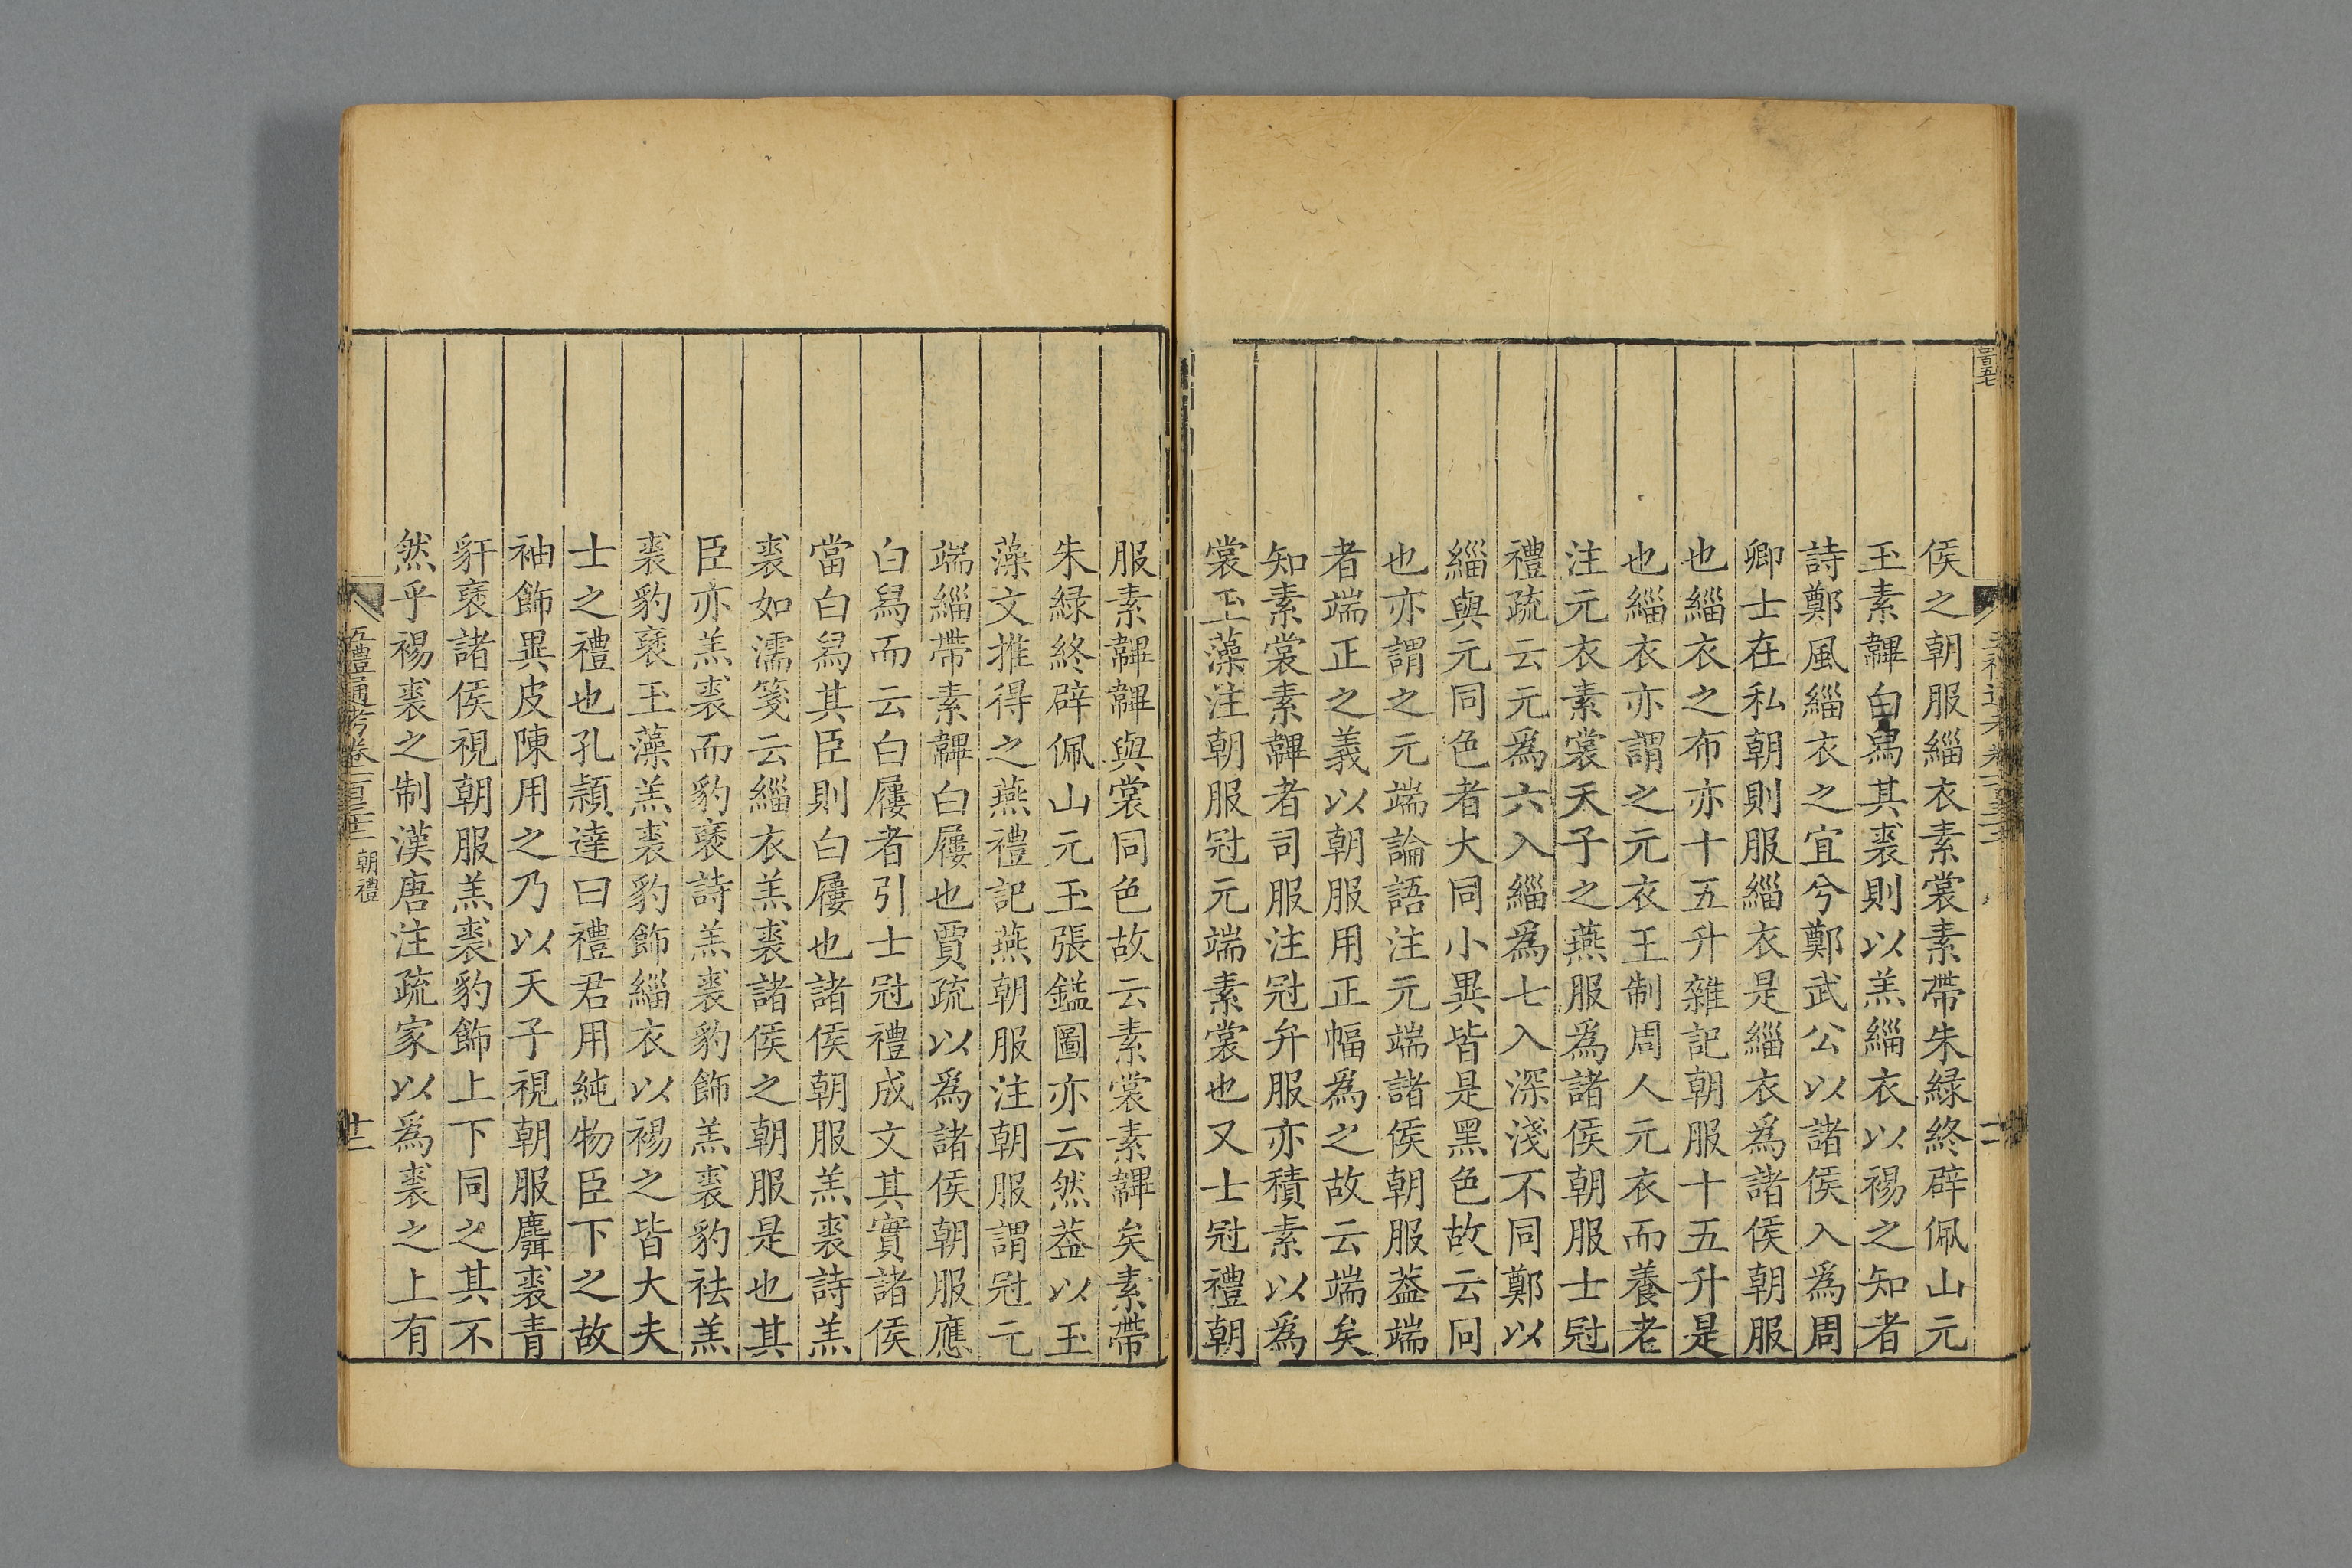 侯之朝服緇衣素裳素帶朱緑終辟佩山元
玉素韠白舄其裘則以羔緇衣以裼之知者
詩鄭風緇衣之宜兮鄭武公以諸侯入爲周
卿士在私朝則服緇衣是緇衣爲諸侯朝服
也緇衣之布亦十五升雜記朝服十五升是
也緇衣亦謂之元衣王制周人元衣而養老
注元衣素裳天子之燕服爲諸侯朝服士冠
禮疏云元爲六入緇爲七入深淺不同鄭以
緇與元同色者大同小異皆是黑色故云同
也亦謂之元端論語注元端諸侯朝服葢端
者端正之義以朝服用正幅爲之故云端矣
知素裳素韠者司服注冠弁服亦積素以爲
裳玉藻注朝服冠元端素裳也又士冠禮朝
服素韠韠與裳同色故云素裳素韠矣素帶
朱緑終辟佩山元玉張鎰圖亦云然葢以玉
藻文推得之燕禮記燕朝服注朝服謂冠元
端緇帶素韠白屨也賈疏以爲諸侯朝服應
白舄而云白屨者引士冠禮成文其實諸侯
當白舄其臣則白屨也諸侯朝服羔裘詩羔
裘如濡箋云緇衣羔裘諸侯之朝服是也其
臣亦羔裘而豹褎詩羔裘豹飾羔裘豹袪羔
裘豹褎玉藻羔裘豹飾緇衣以裼之皆大夫
士之禮也孔頴達曰禮君用純物臣下之故
袖飾異皮陳用之乃以天子視朝服麛裘青
豻褎諸侯視朝服羔裘豹飾上下同之其不
然乎裼裘之制漢唐注疏家以爲裘之上有
五禮通考卷一百三十二 朝禮 廿二